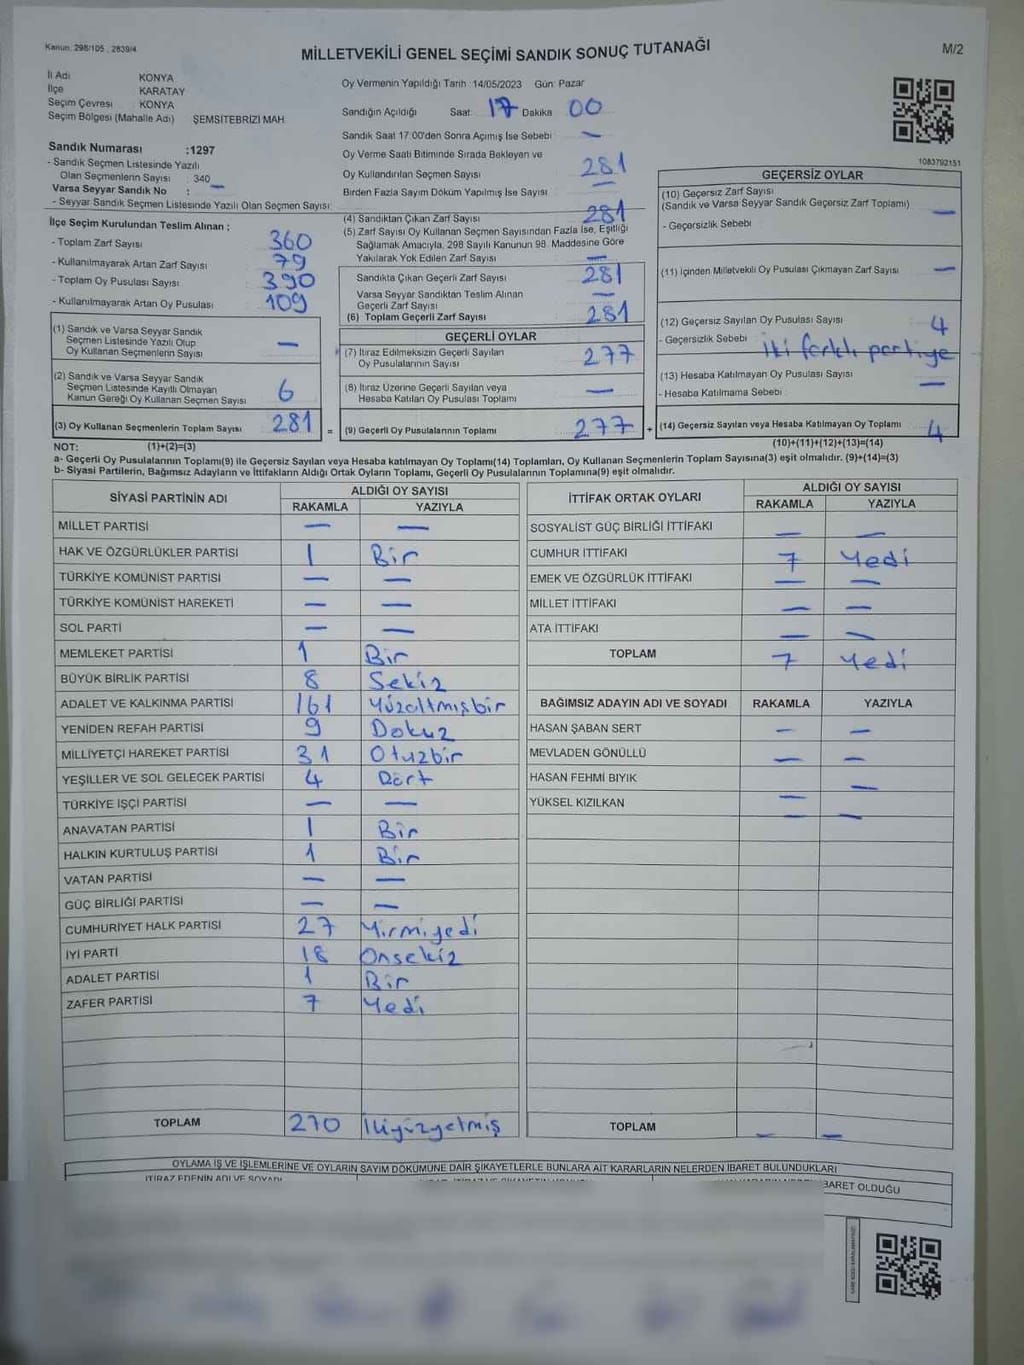 Kanun: 298/105 , 2839/4
MİLLETVEKİLİ GENEL SEÇİMİ SANDIK SONUÇ TUTANAĞI
M/2
İl Adı KONYA
İlçe KARATAY
Seçim Çevresi KONYA
Seçim Bölgesi (Mahalle Adı) ŞEMSİTEBRİZİ MAH.
Sandık Numarası :1297
- Sandık Seçmen Listesinde Yazılı
Olan Seçmenlerin Sayısı : 340
Varsa Seyyar Sandık No : —
- Seyyar Sandık Seçmen Listesinde Yazılı Olan Seçmen Sayısı:
İlçe Seçim Kurulundan Teslim Alınan ;
- Toplam Zarf Sayısı 360
- Kullanılmayarak Artan Zarf Sayısı 79
- Toplam Oy Pusulası Sayısı 390
- Kullanılmayarak Artan Oy Pusulası 109
(1) Sandık ve Varsa Seyyar Sandık
Seçmen Listesinde Yazılı Olup
Oy Kullanan Seçmenlerin Sayısı —
(2) Sandık ve Varsa Seyyar Sandık
Seçmen Listesinde Kayıtlı Olmayan
Kanun Gereği Oy Kullanan Seçmen Sayısı 6
(3) Oy Kullanan Seçmenlerin Toplam Sayısı 281 =
Oy Vermenin Yapıldığı Tarih :14/05/2023 Gün: Pazar
Sandığın Açıldığı Saat: 17 Dakika 00
Sandık Saat 17:00'den Sonra Açımış İse Sebebi —
Oy Verme Saati Bitiminde Sırada Bekleyen ve
Oy Kullandırılan Seçmen Sayısı 281
Birden Fazla Sayım Döküm Yapılmış İse Sayısı —
(4) Sandıktan Çıkan Zarf Sayısı 281
(5) Zarf Sayısı Oy Kullanan Seçmen Sayısından Fazla İse, Eşitliği
Sağlamak Amacıyla, 298 Sayılı Kanunun 98. Maddesine Göre
Yakılarak Yok Edilen Zarf Sayısı —
Sandıkta Çıkan Geçerli Zarf Sayısı 281
Varsa Seyyar Sandıktan Teslim Alınan
Geçerli Zarf Sayısı —
(6) Toplam Geçerli Zarf Sayısı 281
GEÇERLİ OYLAR
(7) İtiraz Edilmeksizin Geçerli Sayılan
Oy Pusulalarının Sayısı 277
(8) İtiraz Üzerine Geçerli Sayılan veya
Hesaba Katılan Oy Pusulası Toplamı —
(9) Geçerli Oy Pusulalarının Toplamı 277 +
1083792151
GEÇERSİZ OYLAR
(10) Geçersiz Zarf Sayısı
(Sandık ve Varsa Seyyar Sandık Geçersiz Zarf Toplamı) —
- Geçersizlik Sebebi
(11) İçinden Milletvekili Oy Pusulası Çıkmayan Zarf Sayısı —
(12) Geçersiz Sayılan Oy Pusulası Sayısı 4
- Geçersizlik Sebebi iki farklı partiye
(13) Hesaba Katılmayan Oy Pusulası Sayısı —
- Hesaba Katılmama Sebebi
(14) Geçersiz Sayılan veya Hesaba Katılmayan Oy Toplamı 4
NOT: (1)+(2)=(3) (10)+(11)+(12)+(13)=(14)
a- Geçerli Oy Pusulalarının Toplamı(9) ile Geçersiz Sayılan veya Hesaba katılmayan Oy Toplamı(14) Toplamları, Oy Kullanan Seçmenlerin Toplam Sayısına(3) eşit olmalıdır. (9)+(14)=(3)
b- Siyasi Partilerin, Bağımsız Adayların ve İttifakların Aldığı Ortak Oyların Toplamı, Geçerli Oy Pusulalarının Toplamına(9) eşit olmalıdır.
SİYASİ PARTİNİN ADI ALDIĞI OY SAYISI
RAKAMLA YAZIYLA
MİLLET PARTİSİ — —
HAK VE ÖZGÜRLÜKLER PARTİSİ 1 Bir
TÜRKİYE KOMÜNİST PARTİSİ — —
TÜRKİYE KOMÜNİST HAREKETİ — —
SOL PARTİ — —
MEMLEKET PARTİSİ 1 Bir
BÜYÜK BİRLİK PARTİSİ 8 Sekiz
ADALET VE KALKINMA PARTİSİ 161 Yüzaltmışbir
YENİDEN REFAH PARTİSİ 9 Dokuz
MİLLİYETÇİ HAREKET PARTİSİ 31 Otuzbir
YEŞİLLER VE SOL GELECEK PARTİSİ 4 Dört
TÜRKİYE İŞÇİ PARTİSİ — —
ANAVATAN PARTİSİ 1 Bir
HALKIN KURTULUŞ PARTİSİ 1 Bir
VATAN PARTİSİ — —
GÜÇ BİRLİĞİ PARTİSİ — —
CUMHURİYET HALK PARTİSİ 27 Yirmiyedi
İYİ PARTİ 18 Onsekiz
ADALET PARTİSİ 1 Bir
ZAFER PARTİSİ 7 Yedi
TOPLAM 270 İkiyüzyetmiş
İTTİFAK ORTAK OYLARI ALDIĞI OY SAYISI
RAKAMLA YAZIYLA
SOSYALİST GÜÇ BİRLİĞİ İTTİFAKI — —
CUMHUR İTTİFAKI 7 Yedi
EMEK VE ÖZGÜRLÜK İTTİFAKI — —
MİLLET İTTİFAKI — —
ATA İTTİFAKI — —
TOPLAM 7 Yedi
BAĞIMSIZ ADAYIN ADI VE SOYADI RAKAMLA YAZIYLA
HASAN ŞABAN SERT — —
MEVLADEN GÖNÜLLÜ — —
HASAN FEHMİ BIYIK — —
YÜKSEL KIZILKAN — —
TOPLAM — —
OYLAMA İŞ VE İŞLEMLERİNE VE OYLARIN SAYIM DÖKÜMÜNE DAİR ŞİKAYETLERLE BUNLARA AİT KARARLARIN NELERDEN İBARET BULUNDUKLARI
İTİRAZ EDENİN ADI VE SOYADI
İBARET OLDUĞU